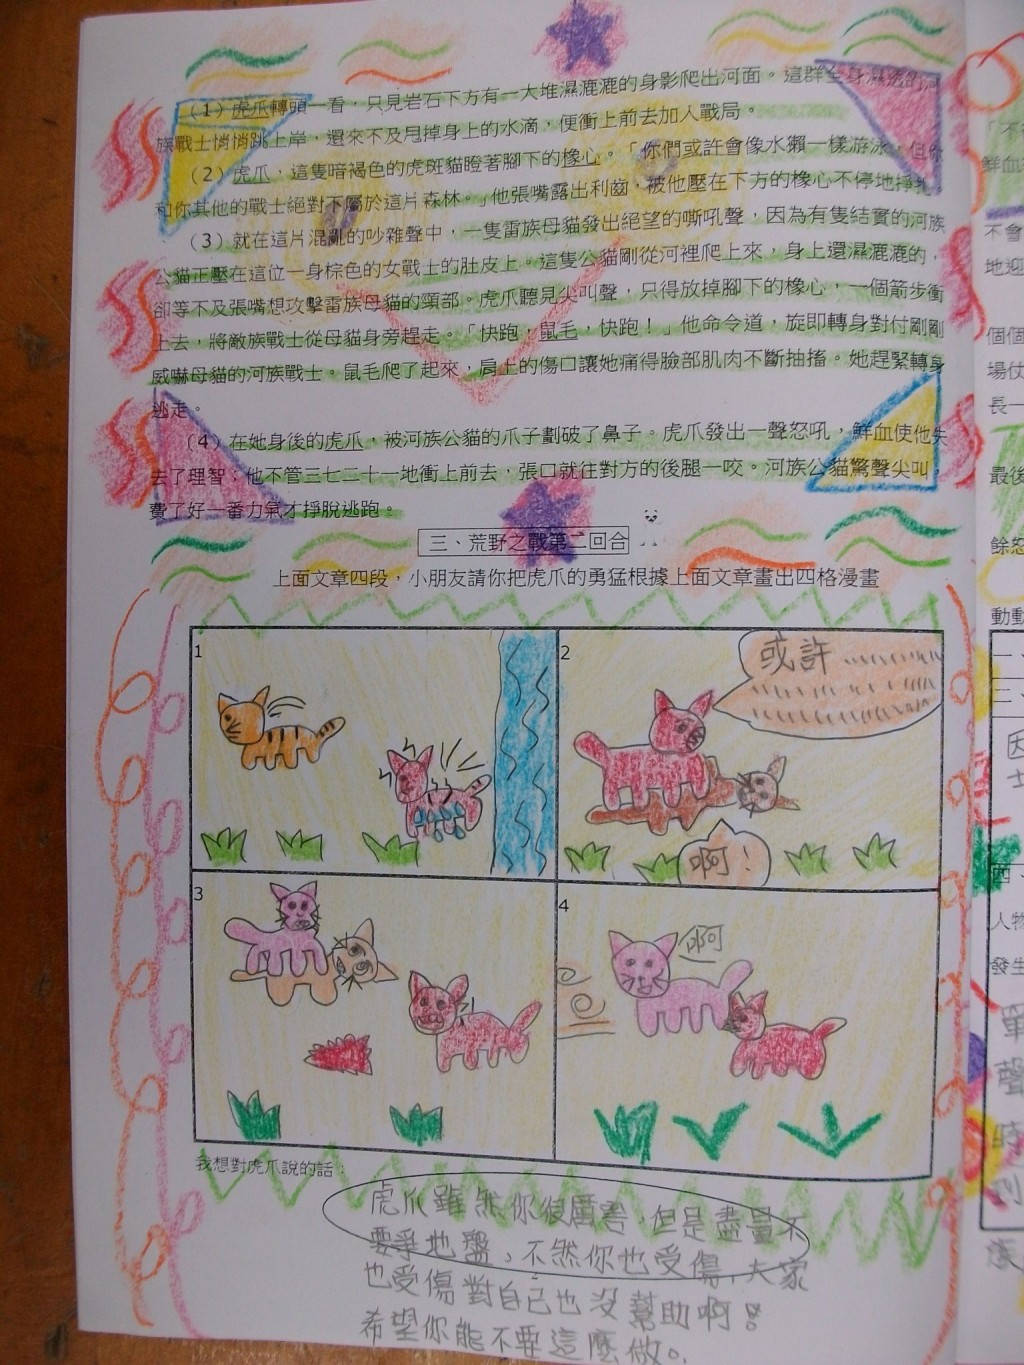 （1）虎爪轉頭一看，只見岩石下方有一大堆濕漉漉的身影爬出河面。這群全身濕透的河
族戰士悄悄跳上岸，還來不及甩掉身上的水滴，便衝上前去加入戰局。
（2）虎爪，這隻暗褐色的虎斑貓瞪著腳下的橡心。「你們或許會像水獺一樣游泳，但你
和你其他的戰士絕對不屬於這片森林。」他張嘴露出利齒，被他壓在下方的橡心不停地掙扎
（3）就在這片混亂的吵雜聲中，一隻雷族母貓發出絕望的嘶吼聲，因為有隻結實的河族
公貓正壓在這位一身棕色的女戰士的肚皮上。這隻公貓剛從河裡爬上來，身上還濕漉漉的，
卻等不及張嘴想攻擊雷族母貓的頸部。虎爪聽見尖叫聲，只得放掉腳下的橡心，一個箭步衝
上去，將敵族戰士從母貓身旁趕走。「快跑，鼠毛，快跑！」他命令道，旋即轉身對付剛剛
威嚇母貓的河族戰士。鼠毛爬了起來，肩上的傷口讓她痛得臉部肌肉不斷抽搐。她趕緊轉身
逃走。
（4）在她身後的虎爪，被河族公貓的爪子劃破了鼻子。虎爪發出一聲怒吼，鮮血使他失
去了理智；他不管三七二十一地衝上前去，張口就往對方的後腿一咬。河族公貓驚聲尖叫，
費了好一番力氣才掙脫逃跑。
三、荒野之戰第二回合
上面文章四段，小朋友請你把虎爪的勇猛根據上面文章畫出四格漫畫
1
2
或許
啊！
3
4
啊
我想對虎爪說的話：
虎爪雖然你很厲害，但是盡量不
要爭地盤，不然你也受傷，大家
也受傷對自己也沒幫助啊！
希望你能不要這麼做。
「不
鮮血
不會
地迎
個個
場仗
長一
最後
餘怒
動動
一、
三、
因
士
四、
人物
發生
單
聲
時